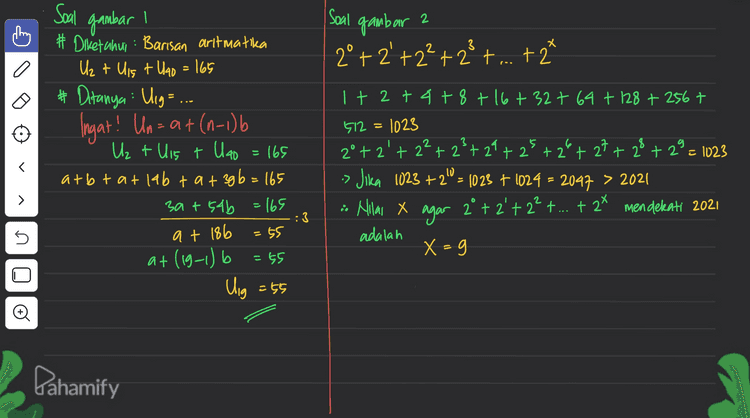 Soal gambar 1
# Diketahui : Barisan aritmatika
U₂ + U₁₅ + U₄₀ = 165
# Ditanya : U₁₉ = ...
Ingat! Un = a + (n-1)b
U₂ + U₁₅ + U₄₀ = 165
a+b + a+14b + a+39b = 165
3a + 54b = 165
:3
a + 18b = 55
a+ (19-1) b = 55
U₁₉ = 55
Soal gambar 2
2⁰ + 2¹ + 2² + 2³ + ... + 2ˣ
1 + 2 + 4 + 8 + 16 + 32 + 64 + 128 + 256 +
512 = 1023
2⁰ + 2¹ + 2² + 2³ + 2⁴ + 2⁵ + 2⁶ + 2⁷ + 2⁸ + 2⁹ = 1023
> Jika 1023 + 2¹⁰ = 1023 + 1024 = 2047 > 2021
∴ Nilai X agar 2⁰ + 2¹ + 2² + ... + 2ˣ mendekati 2021
adalah
X = 9
Pahamify